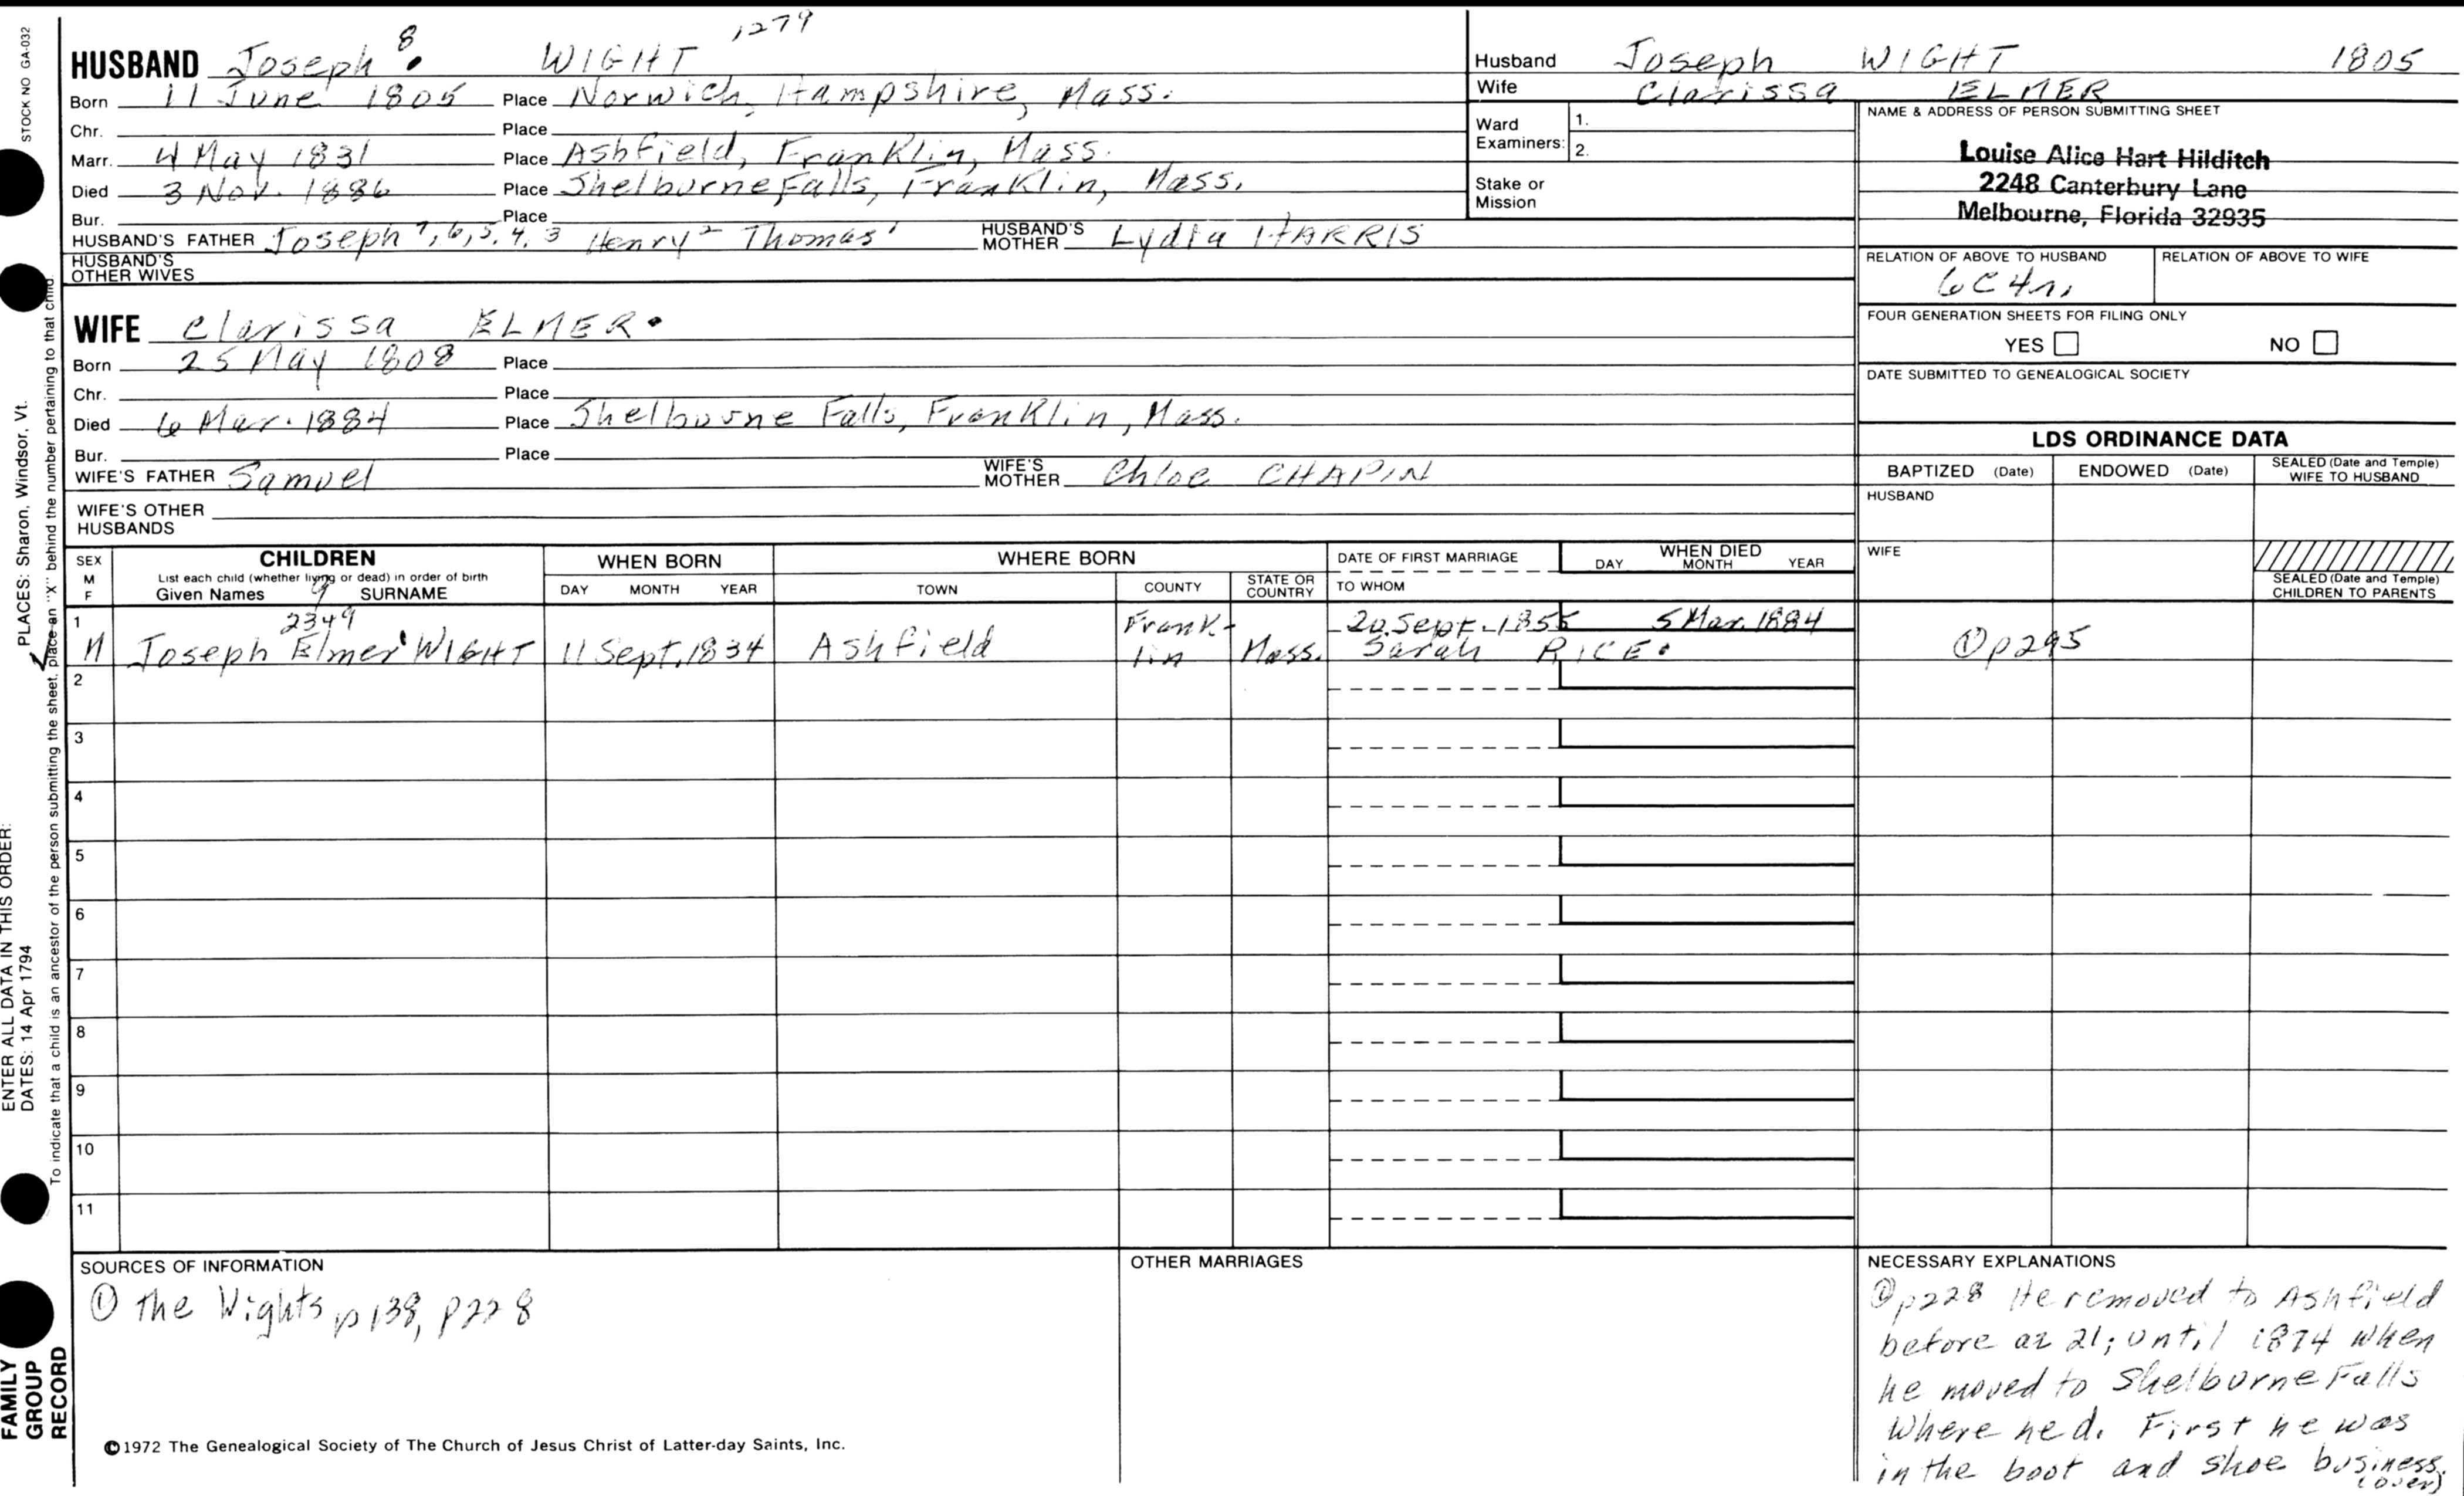 STOCK NO GA-032
1279
HUSBAND Joseph 8 WIGHT
Born 11 June 1805 Place Norwich, Hampshire, Mass.
Chr. Place
Marr. 4 May 1831 Place Ashfield, Franklin, Mass.
Died 3 Nov. 1886 Place Shelburne Falls, Franklin, Mass.
Bur. Place
HUSBAND'S FATHER Joseph 7, 6, 5, 4, 3 Henry 2 Thomas 1 HUSBAND'S MOTHER Lydia HARRIS
HUSBAND'S OTHER WIVES
Husband Joseph WIGHT 1805
Wife Clarissa ELMER
Ward Examiners: 1.
2.
Stake or Mission
NAME & ADDRESS OF PERSON SUBMITTING SHEET
Louise Alice Hart Hilditch
2248 Canterbury Lane
Melbourne, Florida 32935
RELATION OF ABOVE TO HUSBAND RELATION OF ABOVE TO WIFE
6C4r.
FOUR GENERATION SHEETS FOR FILING ONLY
YES NO
DATE SUBMITTED TO GENEALOGICAL SOCIETY
WIFE Clarissa ELMER
Born 25 May 1808 Place
Chr. Place
Died 6 Mar. 1884 Place Shelbourne Falls, Franklin, Mass.
Bur. Place
WIFE'S FATHER Samuel WIFE'S MOTHER Chloe CHAPIN
WIFE'S OTHER HUSBANDS
LDS ORDINANCE DATA
BAPTIZED (Date) ENDOWED (Date) SEALED (Date and Temple) WIFE TO HUSBAND
HUSBAND
WIFE
SEALED (Date and Temple) CHILDREN TO PARENTS
SEX M F CHILDREN WHEN BORN WHERE BORN DATE OF FIRST MARRIAGE WHEN DIED
List each child (whether living or dead) in order of birth
Given Names 9 SURNAME DAY MONTH YEAR TOWN COUNTY STATE OR COUNTRY TO WHOM DAY MONTH YEAR
1 2349 Frank- 20 Sept. 1855 5 Mar. 1884
M Joseph Elmer WIGHT 11 Sept. 1834 Ashfield lin Mass. Sarah RICE ① p295
2
3
4
5
6
7
8
9
10
11
SOURCES OF INFORMATION
① The Wights p 138, p228
OTHER MARRIAGES
NECESSARY EXPLANATIONS
① p228 He removed to Ashfield
before az 21; until 1874 when
he moved to Shelburne Falls
Where he d. First he was
in the boot and shoe business.
(over)
©1972 The Genealogical Society of The Church of Jesus Christ of Latter-day Saints, Inc.
FAMILY
GROUP
RECORD
ENTER ALL DATA IN THIS ORDER:
DATES: 14 Apr 1794
PLACES: Sharon, Windsor, Vt.
To indicate that a child is an ancestor of the person submitting the sheet, place an "X" behind the number pertaining to that child.